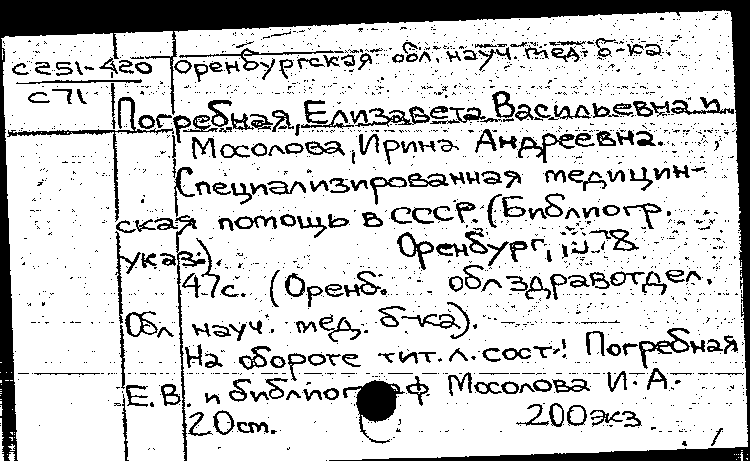 С251-420 Оренбургская обл. науч. мед. б-ка.
С71
Погребная, Елизавета Васильевна и
Мосолова, Ирина Андреевна.
Специализированная медицин-
ская помощь в СССР. (Библиогр.
указ.). Оренбург, 1978
47с. (Оренб. облздравотдел.
Обл науч. мед. б-ка).
На обороте тит. л. сост.: Погребная
Е.В. и библиограф Мосолова И.А.
20см. 200экз